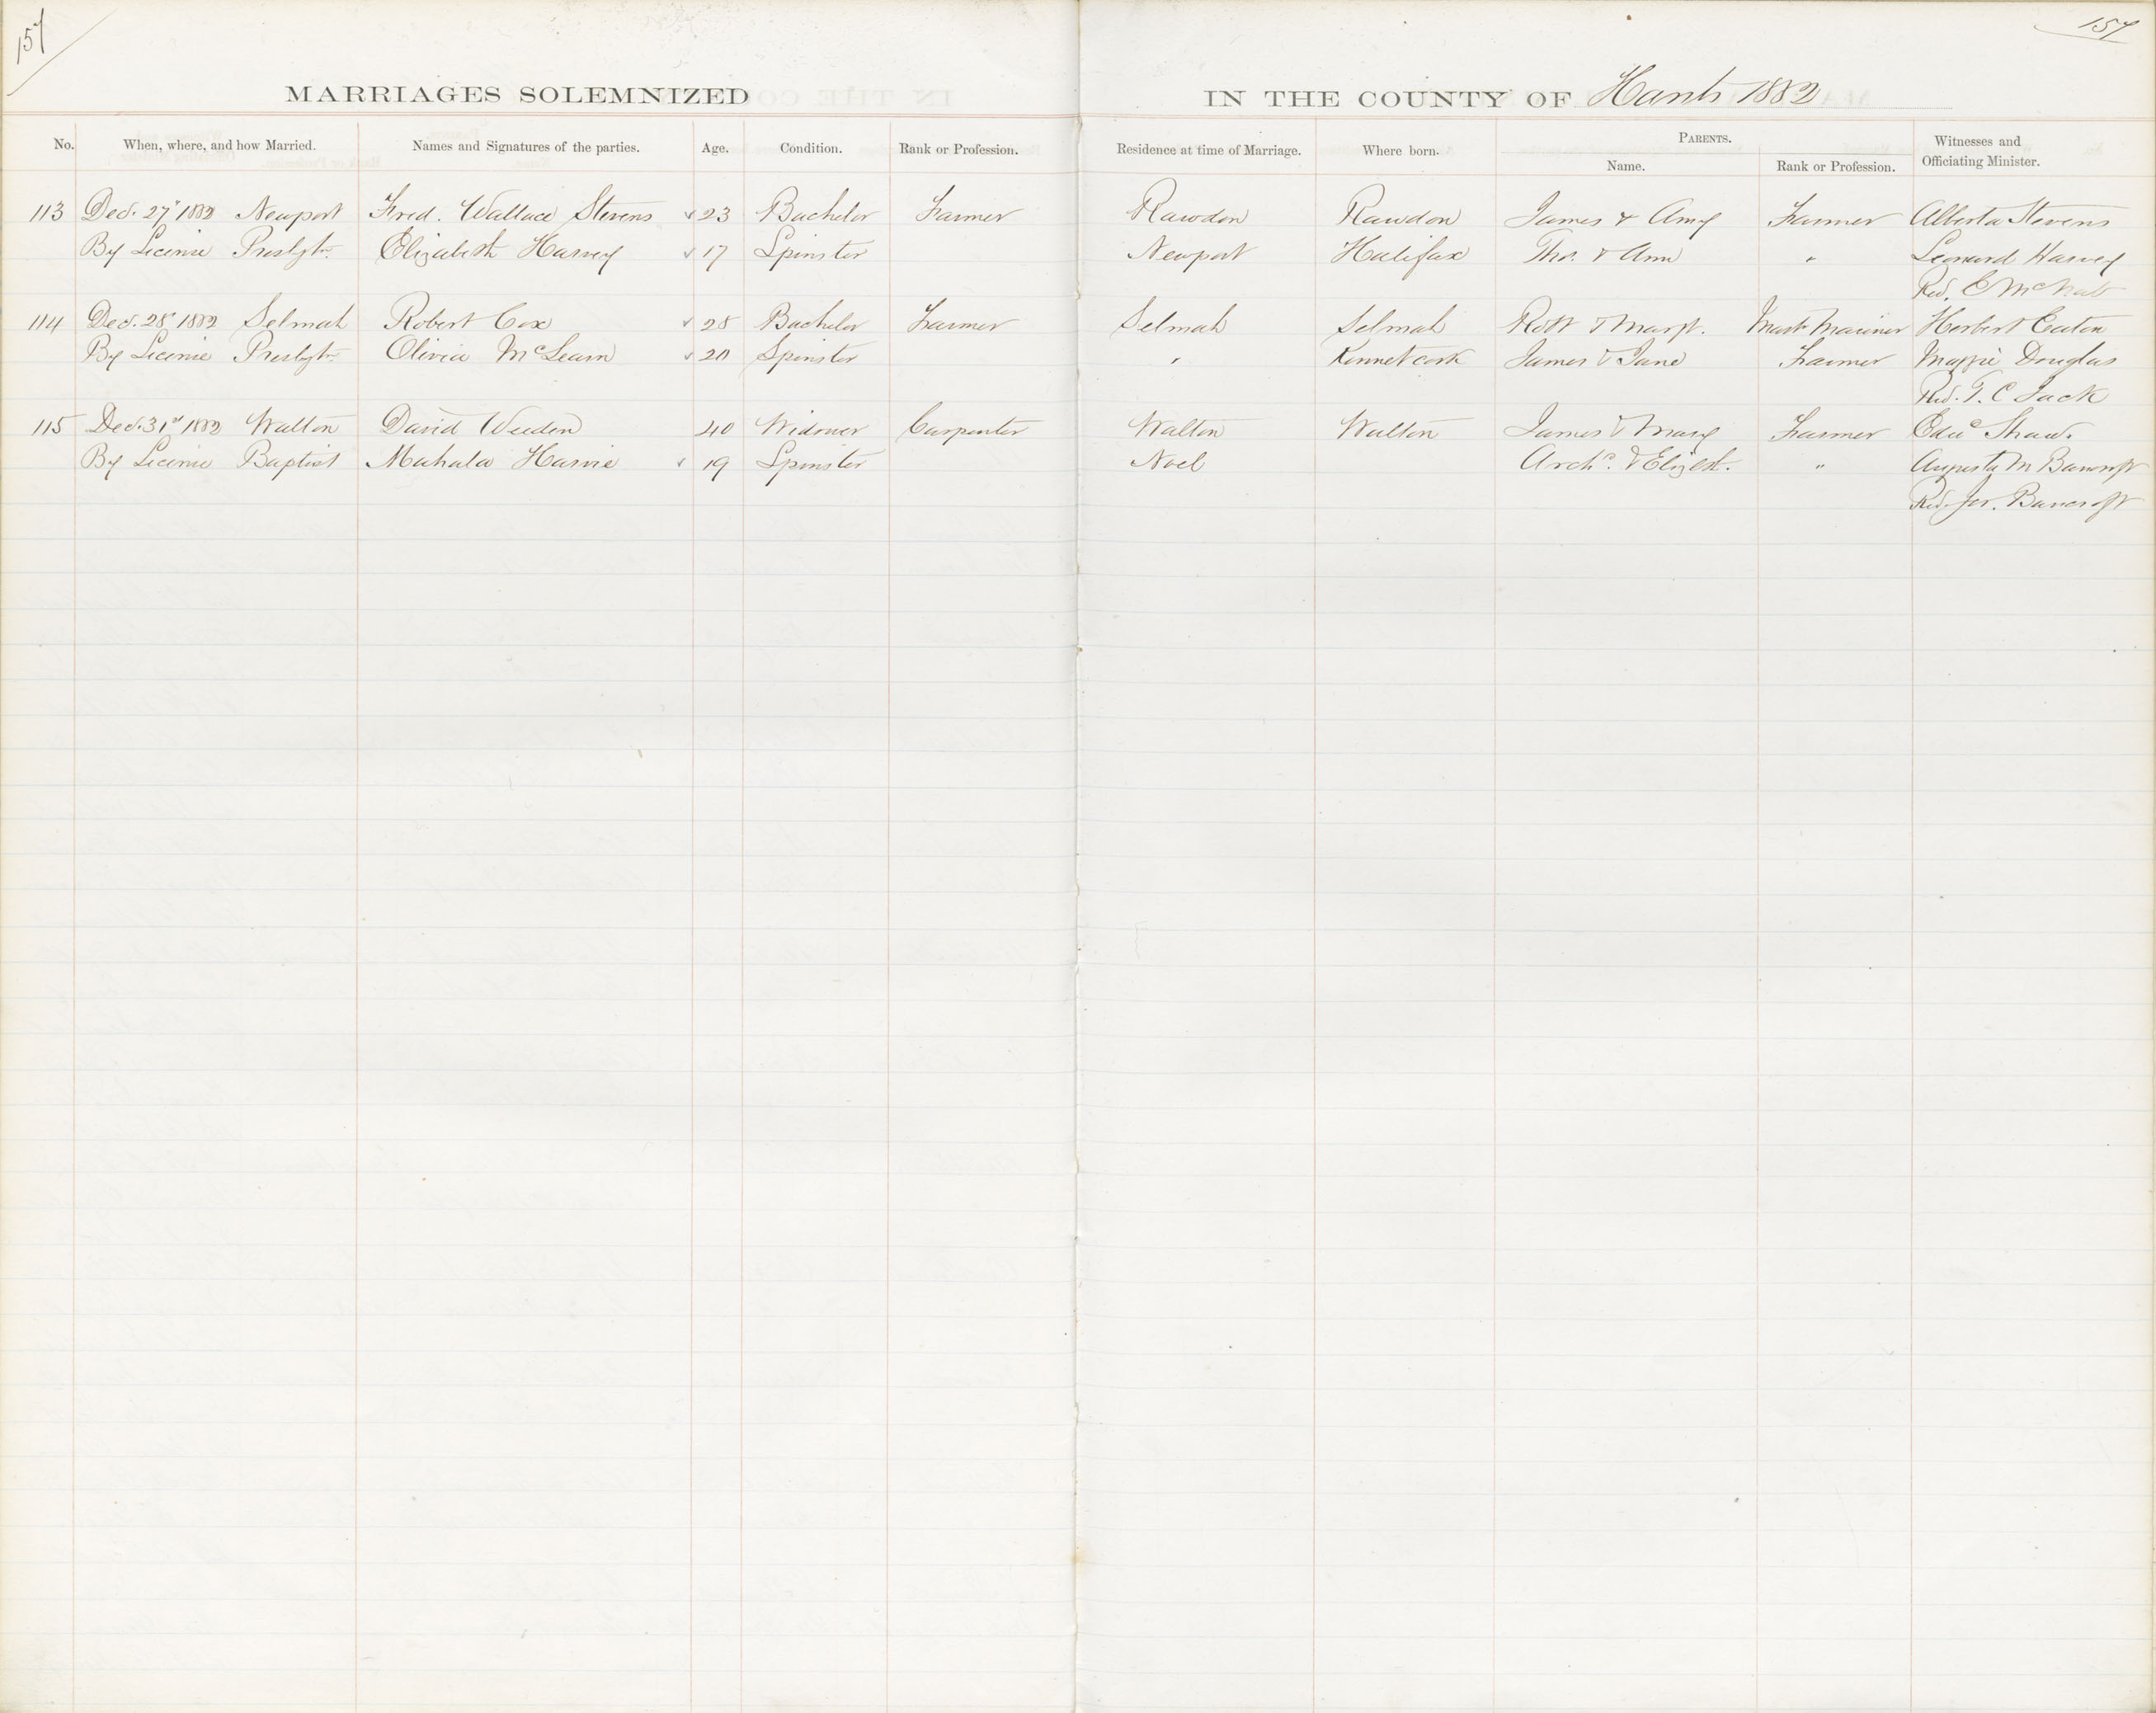 157
157
MARRIAGES SOLEMNIZED IN THE COUNTY OF Hants 1882
No. When, where, and how Married. Names and Signatures of the parties. Age. Condition. Rank or Profession. Residence at time of Marriage. Where born. PARENTS. Name. Rank or Profession. Witnesses and Officiating Minister.
113 Dec. 27" 1882 Newport Fred. Wallace Stevens 23 Bachelor Farmer Rawdon Rawdon James & Amy Farmer Alberta Stevens
By License Presbytn. Elizabeth Harvey 17 Spinster Newport Halifax Thos. & Ann " Leonard Harvey
Rev. E McNab
114 Dec. 28" 1882 Selmah Robert Cox 28 Bachelor Farmer Selmah Selmah Robt & Margt. Mastr Mariner Herbert Eaton
By License Presbytn. Olivia McLearn 20 Spinster " Kennetcook James & Jane Farmer Maggie Douglas
Rev. T. C Jack
115 Dec. 31st 1882 Walton David Weeden 40 Widower Carpenter Walton Walton James & Mary Farmer Edwd Shaw.
By License Baptist Mahala Harvie 19 Spinster Noel Archd. & Elizbth. " Augusta M Bancroft
Rev. Jer. Bancroft